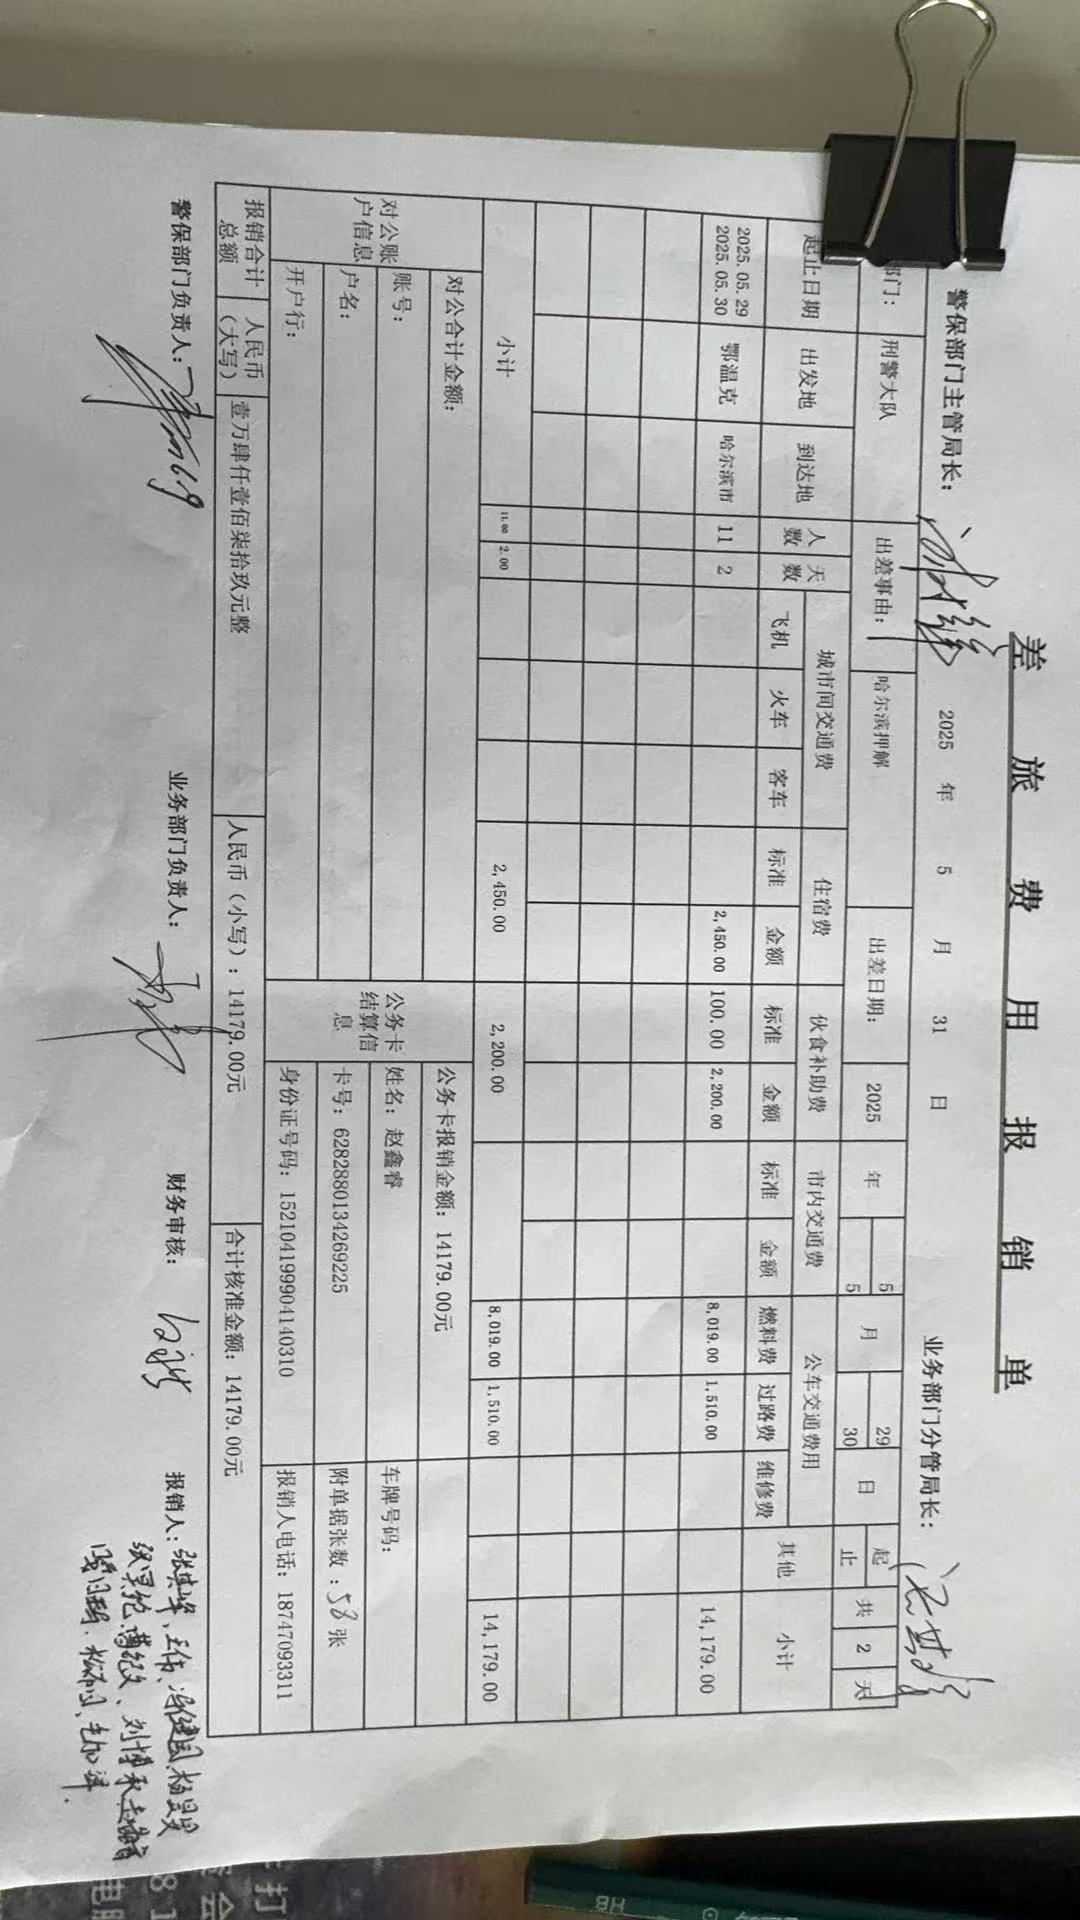 差旅费用报销单
警保部门主管局长： 2025 年 5 月 31 日 业务部门分管局长：
部门： 刑警大队 出差事由： 哈尔滨押解 出差日期： 2025 年 5 月 29 日 起 共 2 天
5 30 止
起止日期 出发地 到达地 人数 天数 城市间交通费 住宿费 伙食补助费 市内交通费 公车交通费用 其他 小计
飞机 火车 客车 标准 金额 标准 金额 标准 金额 燃料费 过路费 维修费
2025.05.29
2025.05.30 鄂温克 哈尔滨市 11 2 2,450.00 100.00 2,200.00 8,019.00 1,510.00 14,179.00
小计 11.00 2.00 2,450.00 2,200.00 8,019.00 1,510.00 14,179.00
对公账户信息 对公合计金额： 公务卡结算信息 公务卡报销金额：14179.00元
账号： 姓名：赵鑫睿 车牌号码：
户名： 卡号：6282880134269225 附单据张数：58张
开户行： 身份证号码：152104199904140310 报销人电话：18747093311
报销合计总额 人民币（大写） 壹万肆仟壹佰柒拾玖元整 人民币（小写）：14179.00元 合计核准金额：14179.00元
警保部门负责人： 业务部门负责人： 财务审核： 报销人：
HB